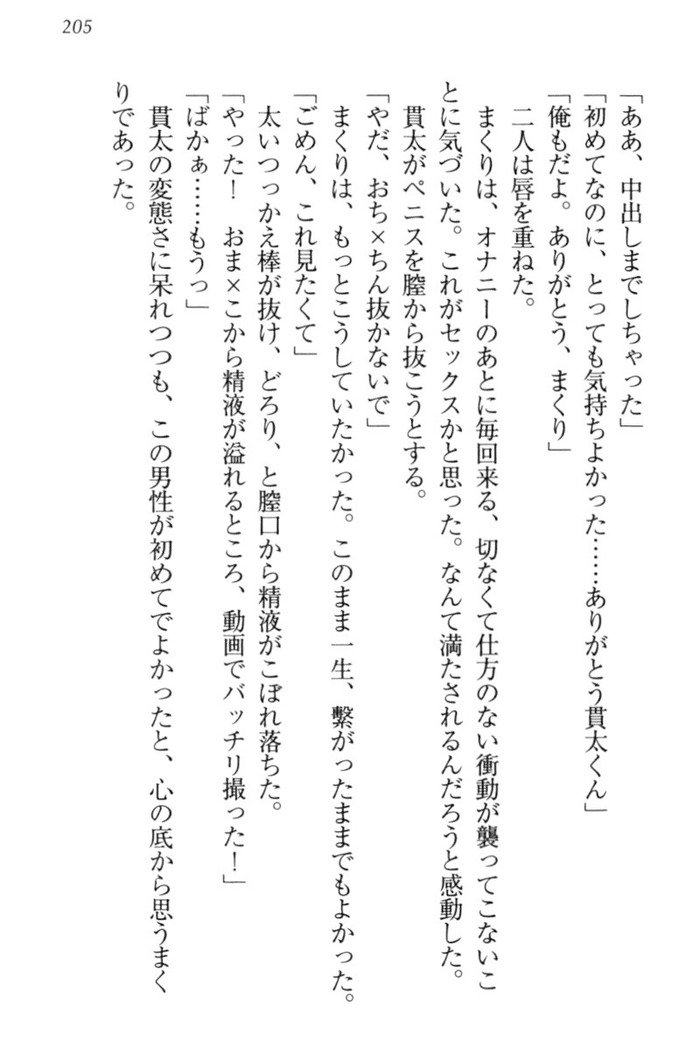 205
「ああ、中出しまでしちゃった」
「初めてなのに、とっても気持ちよかった……ありがとう貫太くん」
「俺もだよ。ありがとう、まくり」
二人は唇を重ねた。
まくりは、オナニーのあとに毎回来る、切なくて仕方のない衝動が襲ってこないこ
とに気づいた。これがセックスかと思った。なんて満たされるんだろうと感動した。
貫太がペニスを膣から抜こうとする。
「やだ、おち×ちん抜かないで」
まくりは、もっとこうしていたかった。このまま一生、繫がったままでもよかった。
「ごめん、これ見たくて」
太いつっかえ棒が抜け、どろり、と膣口から精液がこぼれ落ちた。
「やった！　おま×こから精液が溢れるところ、動画でバッチリ撮った！」
「ばかぁ……もうっ」
貫太の変態さに呆れつつも、この男性が初めてでよかったと、心の底から思うまく
りであった。